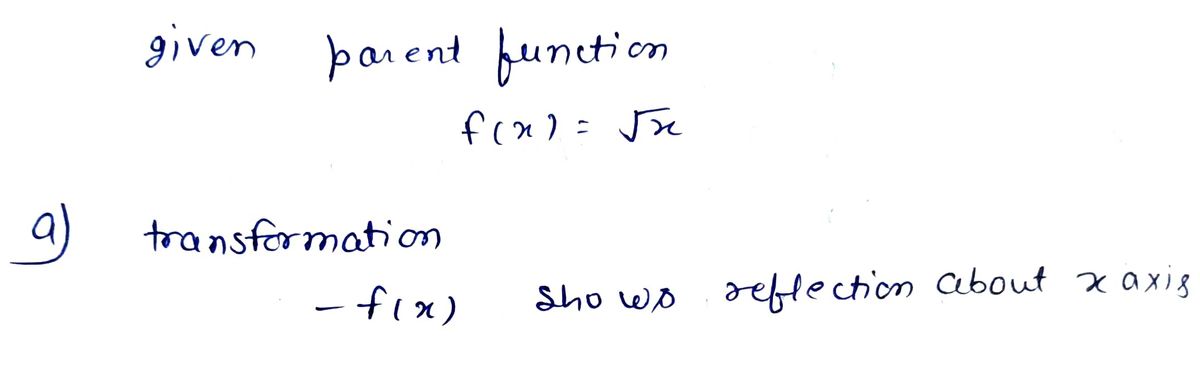 given parent function
f(x) = √x
a) transformation
- f(x) shows reflection about x axis